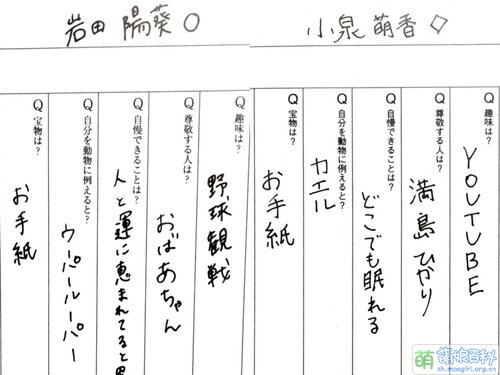 岩田陽葵○
Q 趣味は?
野球観戦
Q 尊敬する人は?
おばあちゃん
Q 自慢できることは?
人と運に恵まれてると思
Q 自分を動物に例えると?
ウーパールーパー
Q 宝物は?
お手紙
小泉萌香◇
Q 趣味は?
YOUTUBE
Q 尊敬する人は?
満島ひかり
Q 自慢できることは?
どこでも眠れる
Q 自分を動物に例えると?
カエル
Q 宝物は?
お手紙
萌 萌娘百科
zh.moegirl.org.cn